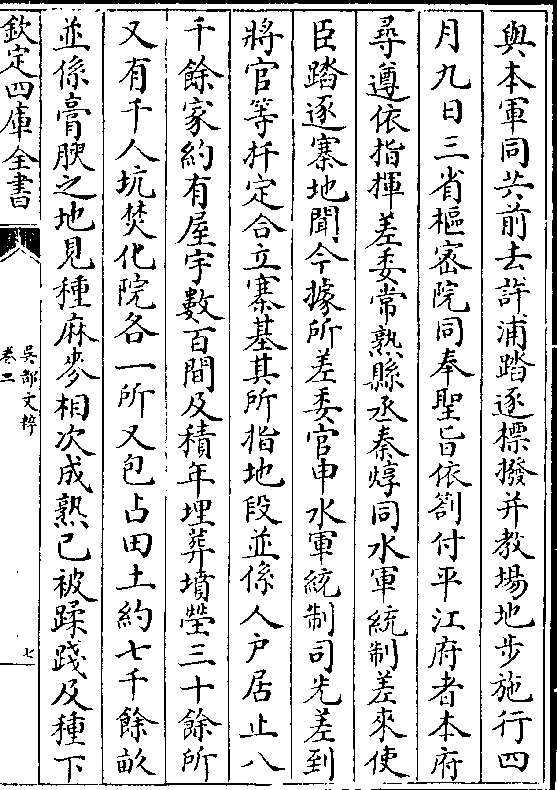 與本軍同共前去許浦踏逐標撥并教場地步施行四
月九日三省樞密院同奉聖旨依劄付平江府者本府
尋遵依指揮差委常熟縣丞秦焞同水軍統制差來使
臣踏逐寨地聞今據所差委官申水軍統制司先差到
將官等扦定合立寨基其所指地段並係人戶居止八
千餘家約有屋宇數百間及積年埋葬墳塋三十餘所
又有千人坑焚化院各一所又包占田土約七千餘畝
並係膏腴之地見種麻麥相次成熟已被蹂踐及種下
欽定四庫全書
吳都文粹
卷二
七